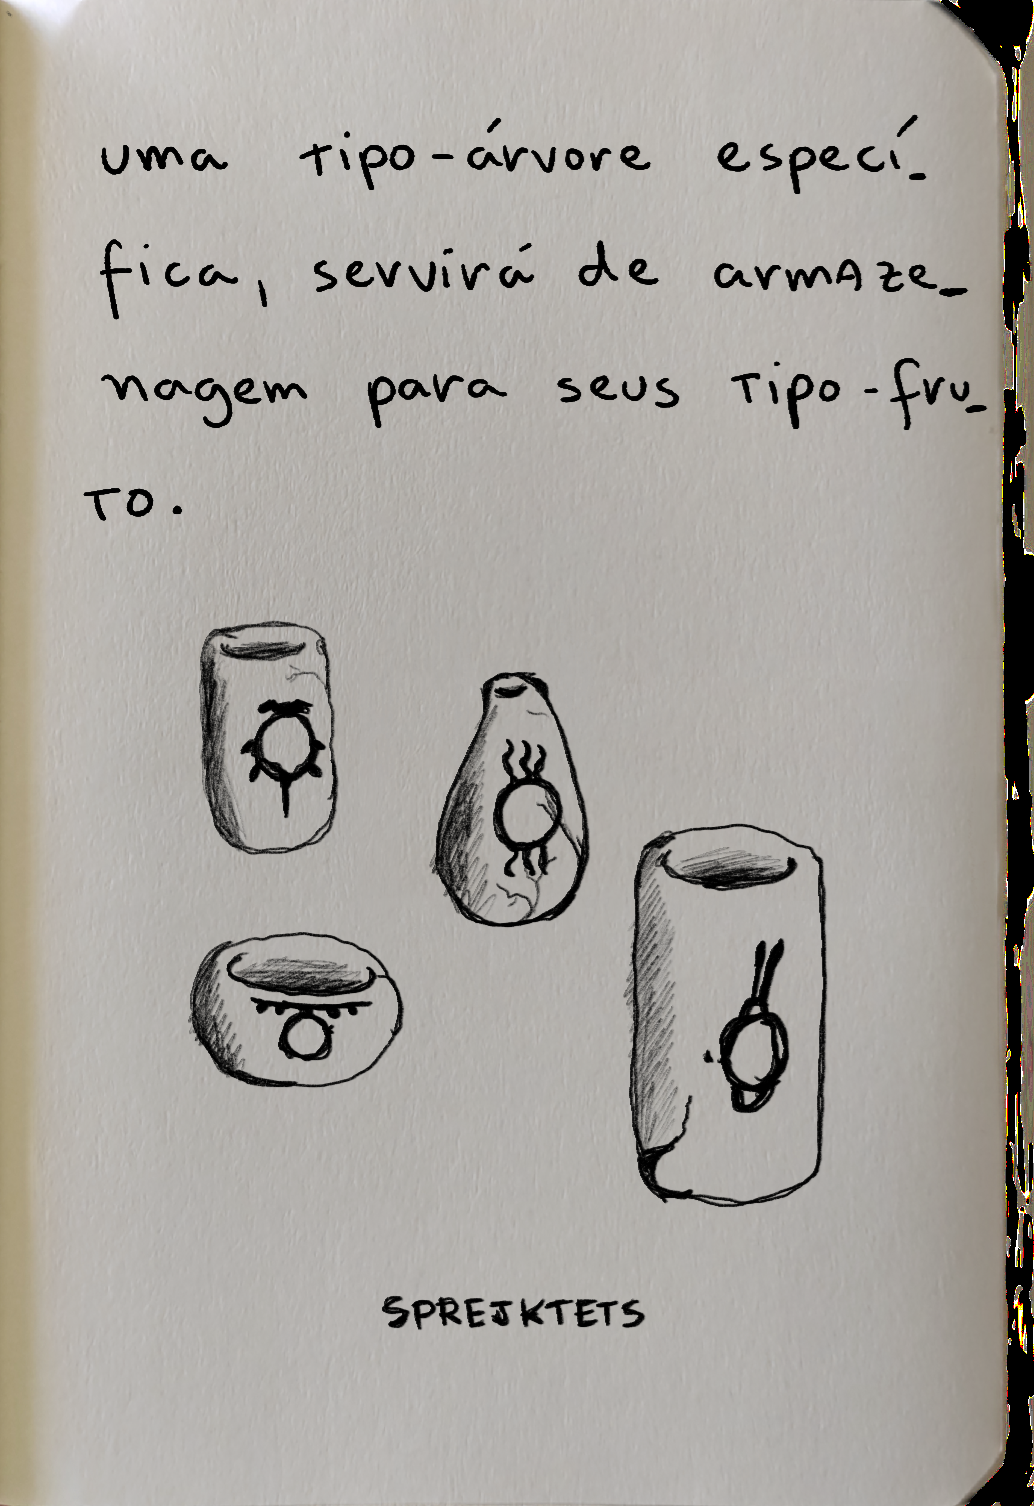 uma tipo-árvore especí-
fica, servirá de armAze-
nagem para seus Tipo-fru-
TO.
SPREJKTETS